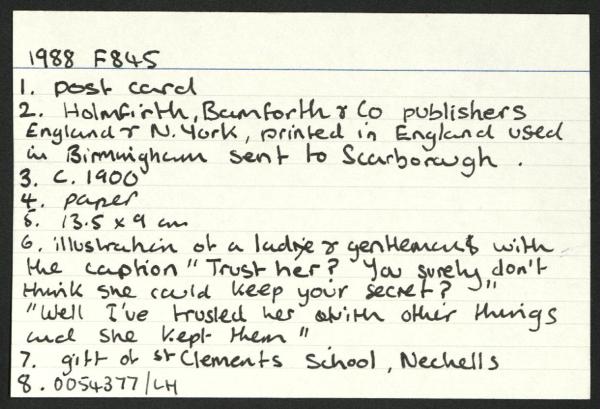 1988 F845
1. post card
2. Holmfirth, Bamforth & Co publishers
England & N. York, printed in England used
in Birmingham sent to Scarborough.
3. C. 1900
4. paper
5. 13.5 x 9 cm
6. illustration of a lady & gentleman with
the caption "Trust her? You surely don't
think she could keep your secret? "
"Well I've trusted her with other things
and she kept them"
7. gift of St Clements School, Nechells
8. 0054377/LH